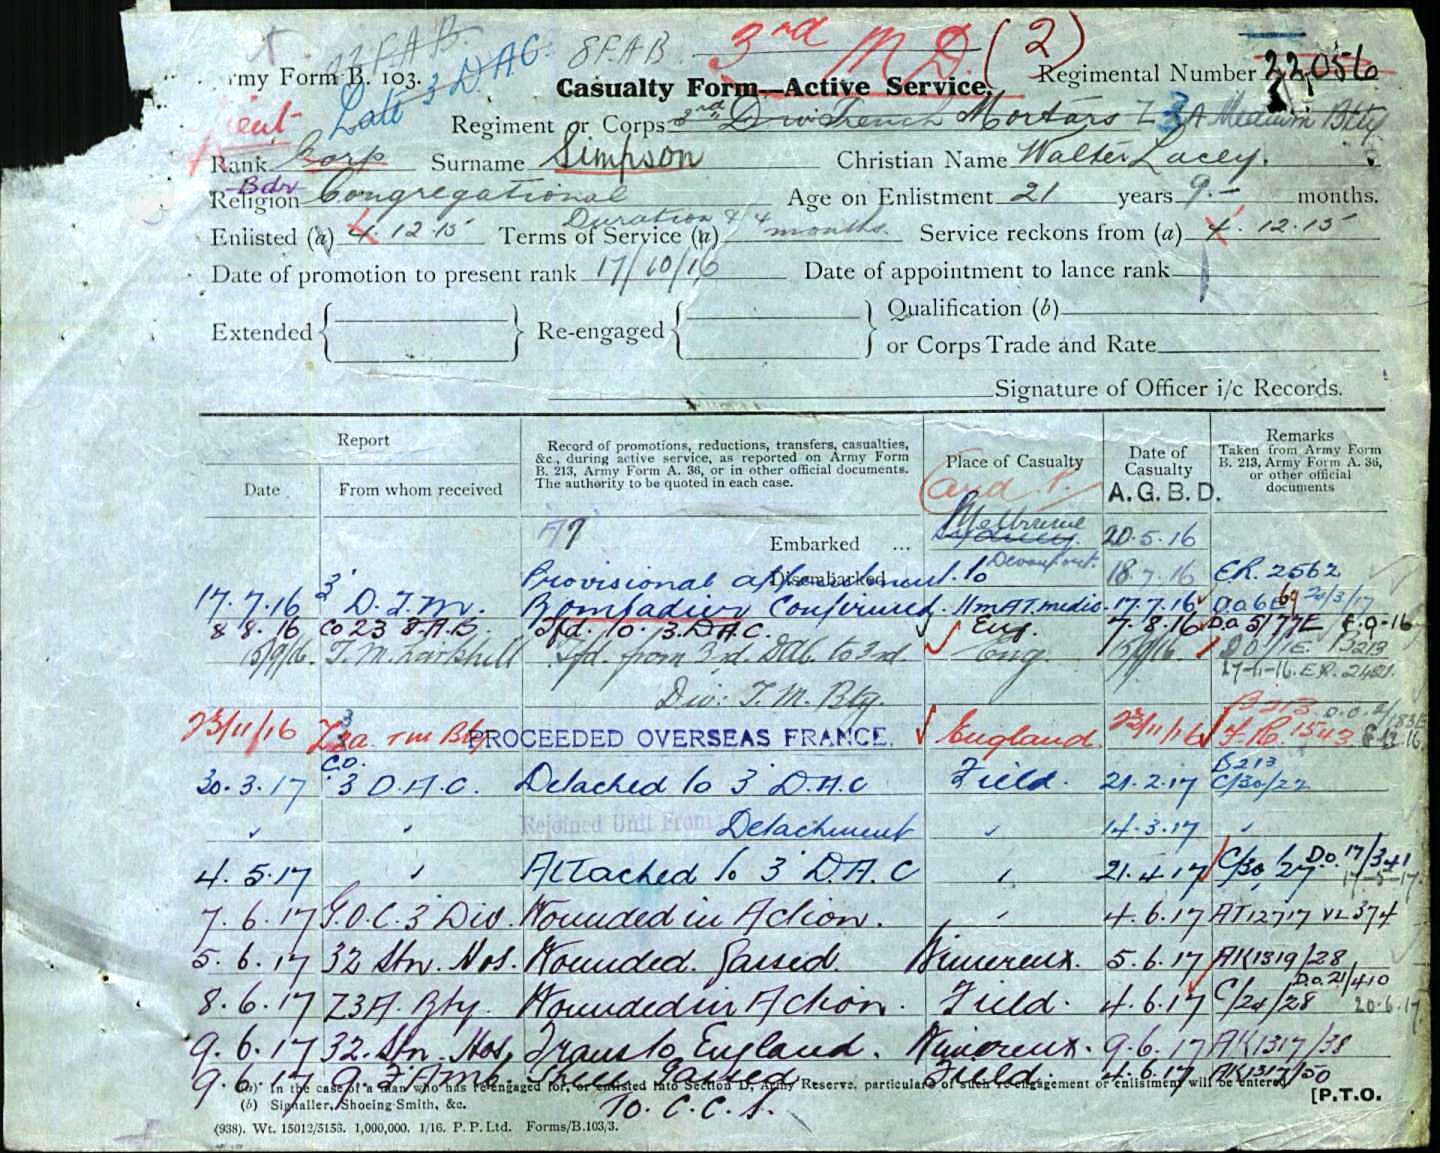 22 F.A.B. 8 F.A.B 3rd M D. (2)
my Form B. 103. Late 3 D.A.C. Casualty Form—Active Service. Regimental Number 22056
Lieut
Regiment or Corps 3rd Div Trench Mortars Z 3 A Medium Bty
Rank Corp Surname Simpson Christian Name Walter Lacey.
Bdr
Religion Congregational Age on Enlistment 21 years 9 months.
Enlisted (a) 4.12.15 Terms of Service (a) Duration & 4 months. Service reckons from (a) 4.12.15
Date of promotion to present rank 17/10/16 Date of appointment to lance rank
Extended Re-engaged Qualification (b)
or Corps Trade and Rate
Signature of Officer i/c Records.
Report
Date From whom received
Record of promotions, reductions, transfers, casualties, &c., during active service, as reported on Army Form B. 213, Army Form A. 36, or in other official documents. The authority to be quoted in each case.
Place of Casualty
Date of Casualty
A.G.B.D.
Remarks
Taken from Army Form B. 213, Army Form A. 36, or other official documents
Embarked ... Melbourne Sydney. 20.5.16
Disembarked Devonport. 18.7.16
17.7.16 3 D.T.M. Provisional appointment to Bombadier Confirmed. HmAT.medic. 17.7.16 ER. 2562
D.O 6E 20/3/17
8 8.16 CO 23 8.A.B Tfd. to. 3.D.A.C. Eng. 7.8.16 Do 5/77E
15/9/16. T.M. Larkhill Tfd. from 3rd. DAC. to 3rd. Div: T.M. Bty. Eng. 15/9/16. D.O/1E. B213
27-11-16. ER. 2481.
23/11/16 Z3a TM Bty PROCEEDED OVERSEAS FRANCE. England. 23/11/16 B213 F.R. 1543
30.3.17 CO. 3 D.A.C. Detached to 3 D.A.C Field. 21.2.17 B213 C/30/22
" " Rejoined Unit From Detachment " 14.3.17 "
4.5.17 " Attached to 3 D.A.C " 21.4.17 C/30/27. Do 17/341 17-5-17.
7.6.17 G.O.C. 3 Div. Wounded in Action. " 4.6.17 AT12717 VL374
5.6.17 32 Stn. Hos. Wounded. Gassed. Wimereux. 5.6.17 AK1319/28
8.6.17 Z3A. Bty. Wounded in Action. Field. 4.6.17 C/24/28 Do.21/410 20.6.17
9.6.17 32. Stn. Hos, Trans to England. Wimereux. 9.6.17 AK1317/38
9.6.17 9 F. Amb. Shell Gassed To. C.C.S. Field. 4.6.17 AK1317/50
(a) In the case of a man who has re-engaged for, or enlisted into Section D, Army Reserve, particulars of such re-engagement or enlistment will be entered
(b) Signaller, Shoeing-Smith, &c.
[P.T.O.
(938). Wt. 15012/5153. 1,000,000. 1/16. P. P. Ltd. Forms/B.103/3.